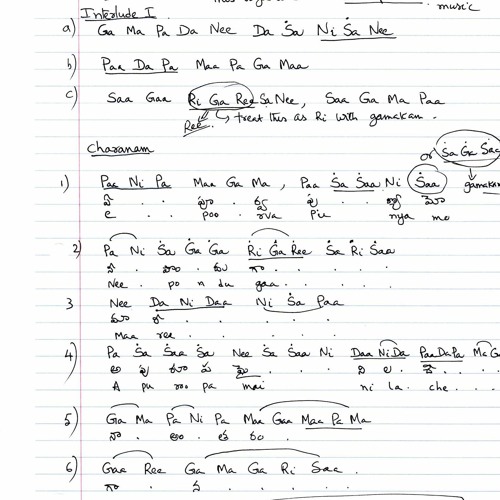 music
Interlude I
a) Ga Ma Pa Da Nee Da Ṡa Ni Ṡa Nee
b) Paa Da Pa Maa Pa Ga Maa
c) Saa Gaa Ri Ga Ree Sa Nee, Saa Ga Ma Paa
Ree. ↳ treat this as Ri with gamakam.
Charanam
or Ṡa Ġa Ṡaa
1) Paa Ni Pa Maa Ga Ma, Paa Ṡa Ṡaa Ni Ṡaa gamakam
ఏ . . పూ . ర్వ . పు . . ణ్య మో
e . . poo . rva Pu . . nya mo
2) Pa Ni Ṡa Ġa Ġa Ṙi Ġa Ṙee Ṡa Ṙi Ṡaa
నీ . పొం . దు గా . . . . .
Nee . po n du gaa . . . . .
3 Nee Da Ni Daa Ni Ṡa Paa
మా రీ . . . . .
Maa ree . . . . .
4) Pa Ṡa Ṡaa Ṡa Nee Ṡa Ṡaa Ni Daa Ni Da Paa Da Pa Ma G
అ పు రూ ప మై . . . ని ల . చే . . . .
A pu roo pa mai ni la . che . . . .
5) Ga Ma Pa Ni Pa Maa Gaa Maa Pa Ma
నా . అం . త రం .
6) Gaa Ree Ga Ma Ga Ri Saa .
గా . న . . . .